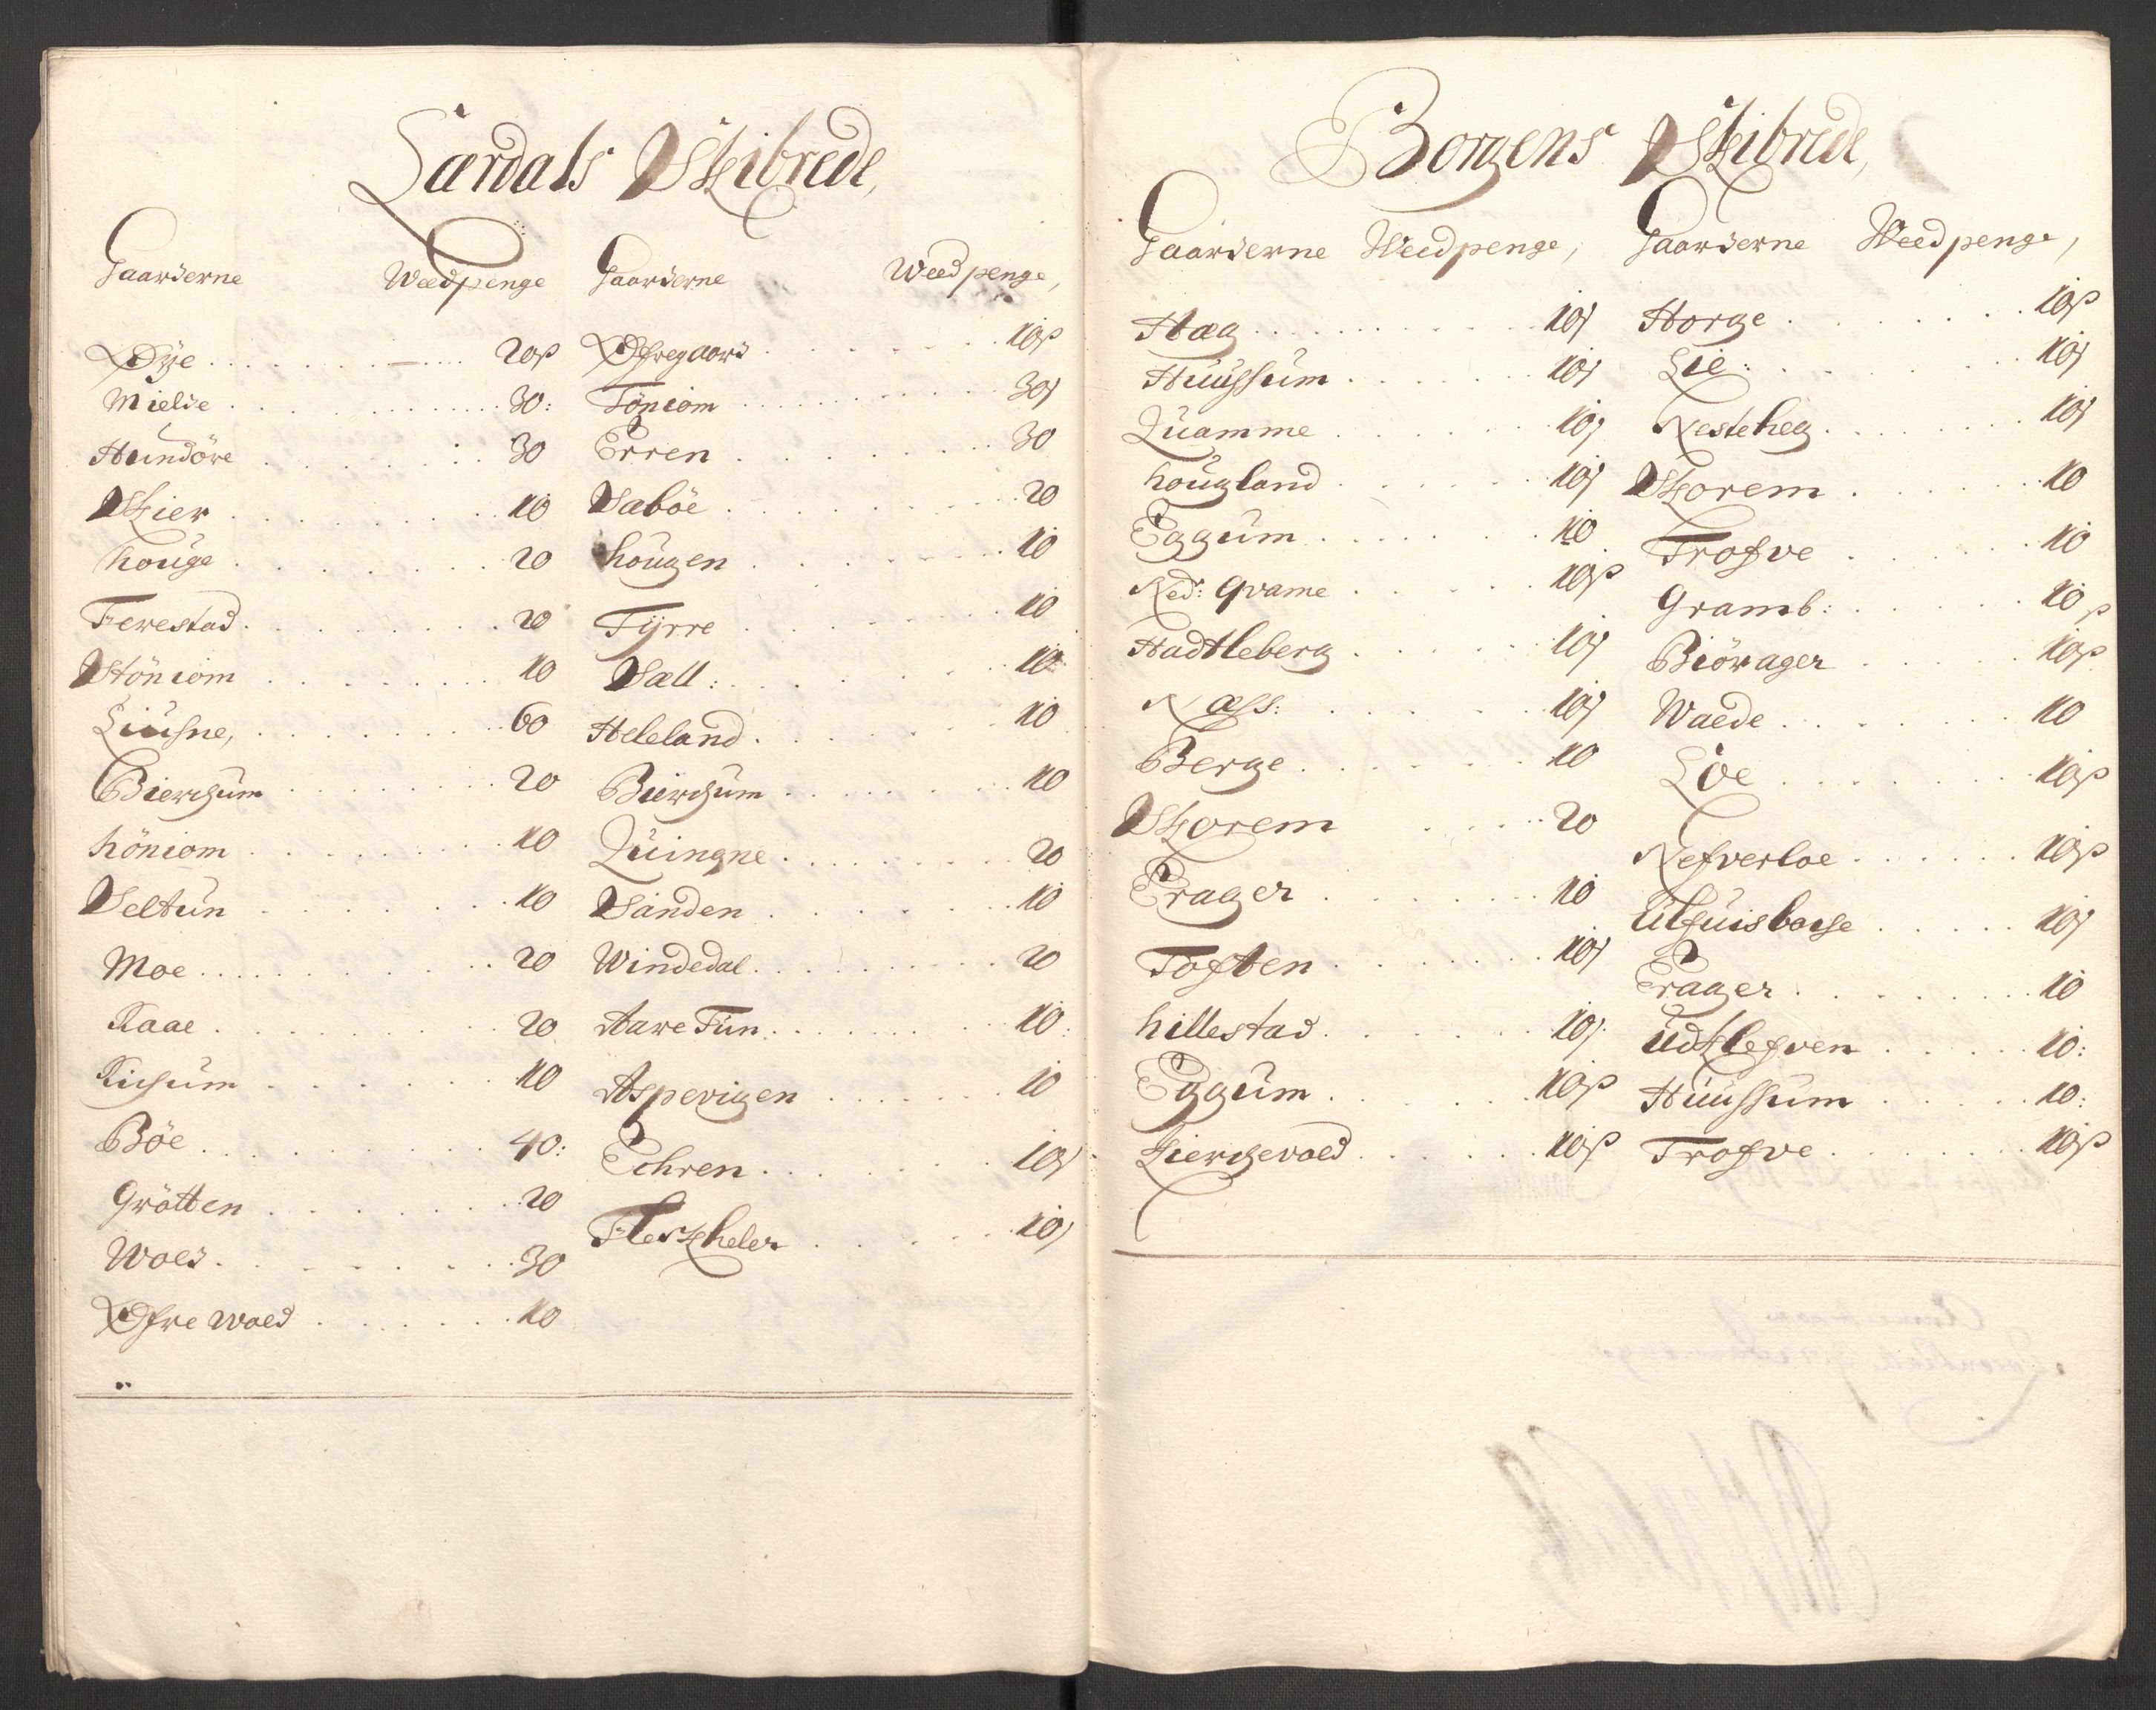 Lærdals Skibrede,
Gaarderne Weedpenge Gaarderne Weedpenge,
Øÿe 20β Øfregaard 10β
Mielde 30: Töniom 30β
Hundöre 30 Erren 30
Skier 10 Sæböe 20
houge 20 hougen 10
Ferestad 20 Tÿrre 10
Stöniom 10 Sæll: 10
Liusne, 60 Heleland 10
Bierchum 20 Bierchum 10
höniom 10 Quingne 20
Seltun 10 Sanden 10
Moe 20 Windedal 20
Raae 20 Aare Tun 10:
Richum 10 Asperigen 10
Böe 40: Echren 10β
Grötten 20 Fleskheler 10β
Wold 30
Øfre Wold 10
Borgens Skibrede,
Gaarderne Weedpenge, Gaarderne Weedpenge,
Hæg 10β Horge 10β
Huussum 10β Lie: 10β
Quamme 10β Nesteheg 10β
hougland 10β Skorem 10
Eggum 10 Trofve 10
Ned: Qvame 10β Gramb: 10β
Hadtleberg 10β Biörager 10β
Næss: 10β Waede 10
Berge 10 Loe 10β
Skorem 20 Nefverloe 10β
Erager 10 10β
Toften 10β Erager 10
hillestad 10β Udklefven 10:
Eggum 10β Huussum 10:
Kierchevold 10β Trofve 10β